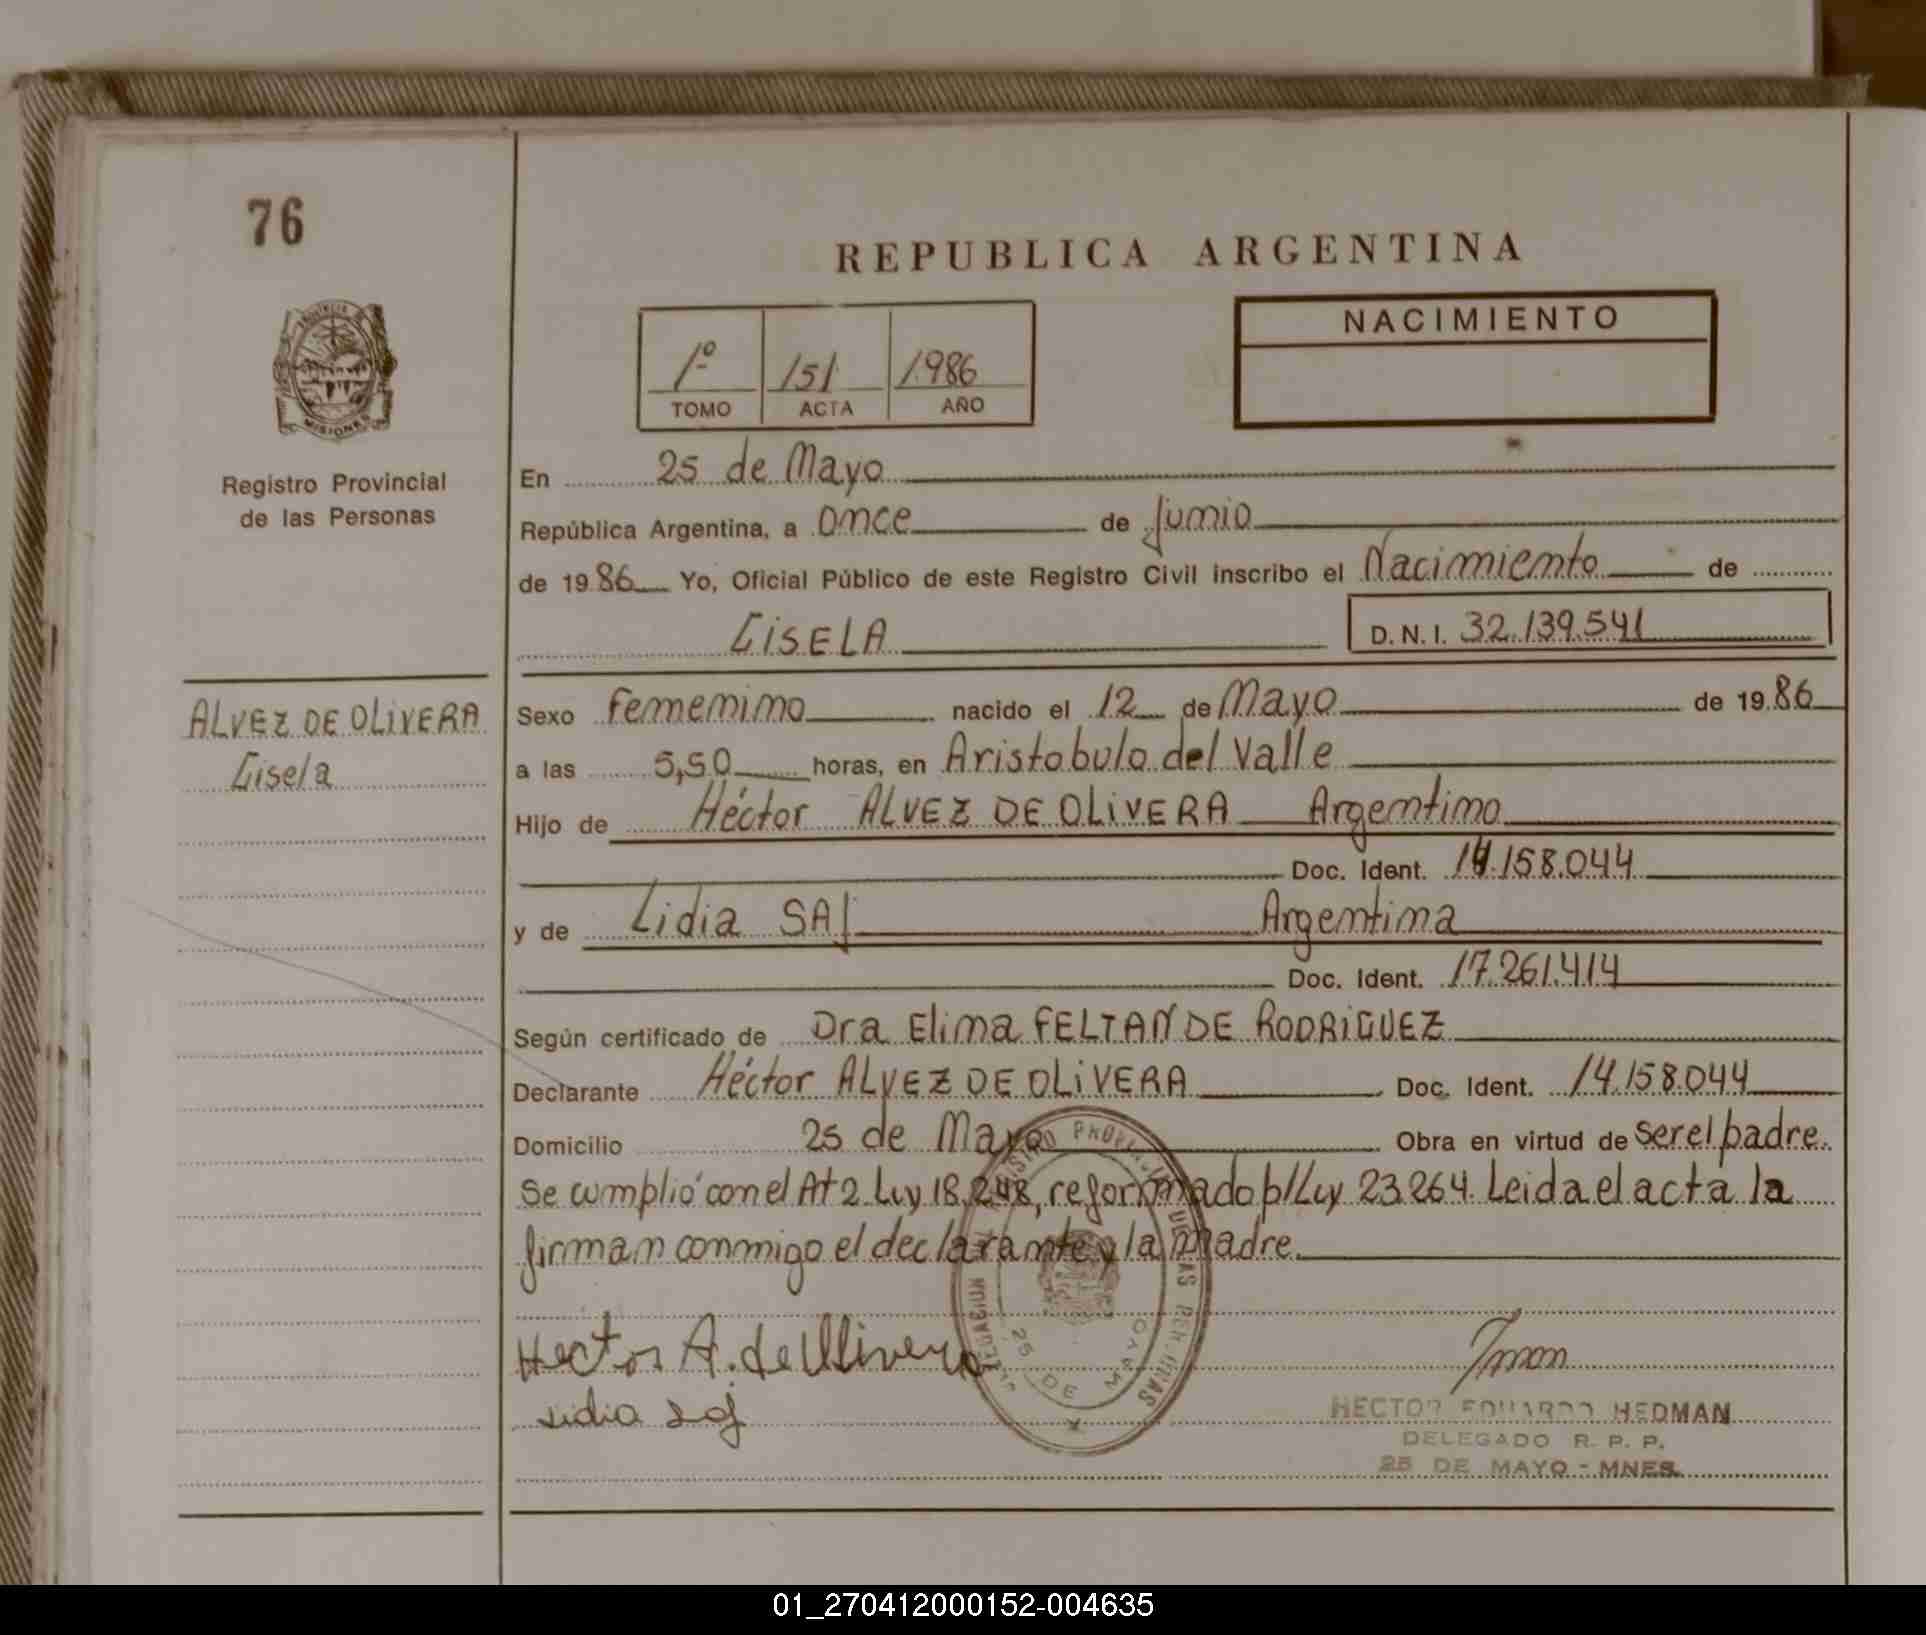 76
REPUBLICA ARGENTINA
1º 151 1986
TOMO ACTA AÑO
NACIMIENTO
MISIONES
Registro Provincial
de las Personas
En 25 de Mayo
República Argentina, a once de Junio
de 1986 Yo, Oficial Público de este Registro Civil inscribo el Nacimiento de
GISELA D.N.I. 32.139.541
ALVEZ DE OLIVERA
Gisela
Sexo Femenino nacido el 12 de Mayo de 1986
a las 5,50 horas, en Aristobulo del Valle
Hijo de Héctor ALVEZ DE OLIVERA Argentino
Doc. Ident. 14.158.044
y de Lidia SAJ Argentina
Doc. Ident. 17.261.414
Según certificado de Dra Elina FELTAN DE RODRIGUEZ
Declarante Héctor ALVEZ DE OLIVERA Doc. Ident. 14.158.044
Domicilio 25 de Mayo Obra en virtud de ser el padre.
Se cumplió con el At 2 Ley 18.248, reformado p/Ley 23.264. Leida el acta la
firman conmigo el declarante y la madre.
25 DE MAYO
Hector A. de Olivera
Lidia Saj
HECTOR EDUARDO HEDMAN
DELEGADO R. P. P.
25 DE MAYO - MNES.
01_270412000152-004635